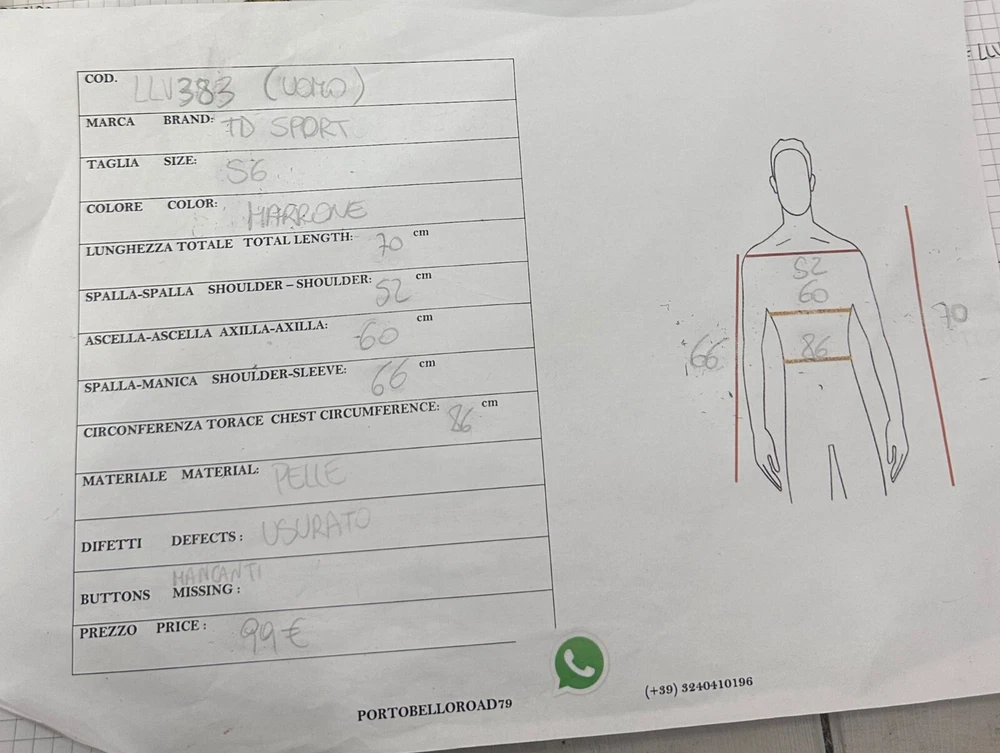 COD. LLV383 (UOMO)
MARCA BRAND: TD SPORT
TAGLIA SIZE: 56
COLORE COLOR: MARRONE
LUNGHEZZA TOTALE TOTAL LENGTH: 70 cm
SPALLA-SPALLA SHOULDER – SHOULDER: 52 cm
ASCELLA-ASCELLA AXILLA-AXILLA: 60 cm
SPALLA-MANICA SHOULDER-SLEEVE: 66 cm
CIRCONFERENZA TORACE CHEST CIRCUMFERENCE: 86 cm
MATERIALE MATERIAL: PELLE
DIFETTI DEFECTS: USURATO
MANCANTI
BUTTONS MISSING:
PREZZO PRICE: 99 €
52
60
86
66
70
PORTOBELLOROAD79
(+39) 3240410196